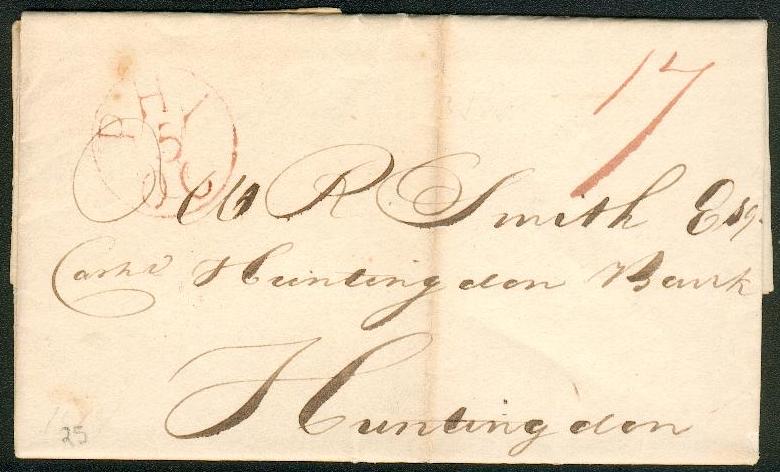 17
PHI
5
W R. Smith Esq.
Cashr Huntingdon Bank
Huntingdon
25